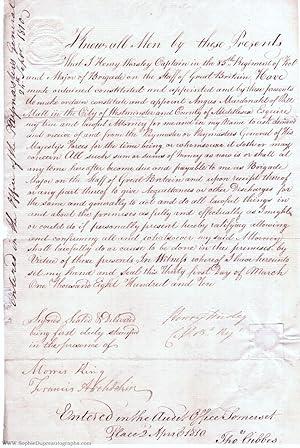 Know all Men by these Presents
That I Henry Horsley Captain in the 85th Regiment of Foot
and Major of Brigade on the Staff of Great Britain Have
made ordained constituted and appointed and by these presents
Do make ordain constitute and appoint Angus Macdonald of Pall
Mall in the City of Westminster and County of Middlesex Esquire
my true and lawful Attorney for me and in my Name to ask demand
and receive of and from the Paymaster or Paymasters General of His
Majesty's Forces for the time being or whomsoever it doth or may
concern All such sum or sums of Money as now is or shall at
any time hereafter become due and payable to me as Brigade
Major on the Staff of Great Britain and upon receipt thereof
or any part thereof to give Acquittances or other Discharges for
the same and generally to act and do all lawful things in
and about the premises as fully and effectually as I might
or could do if personally present hereby ratifying allowing
and confirming all and whatsoever my said Attorney
shall lawfully do or cause to be done in the premises by
Virtue of these presents In Witness whereof I have hereunto
set my Hand and Seal this Thirty first Day of March
One Thousand Eight Hundred and Ten
Signed Sealed & Delivered
being first duly stamped
in the presence of
Morris King
Francis
Entered in the Audit Office Somerset
Place 2 April 1810
Thos Gibbes
www.SophieDupreautographs.com